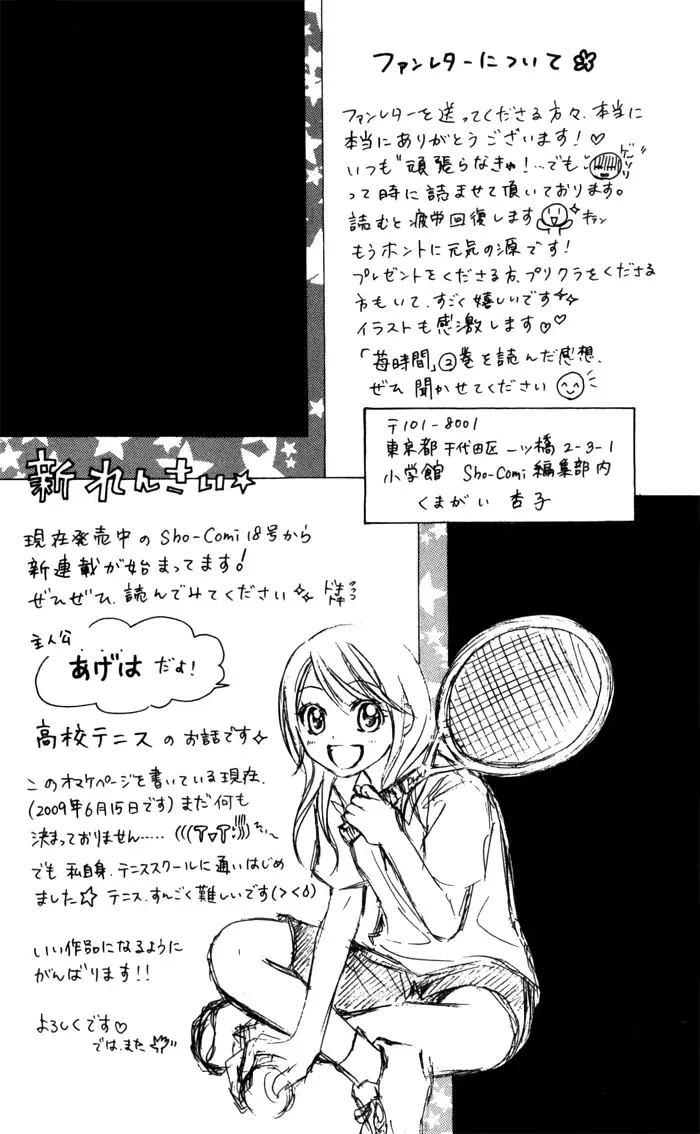 ファンレターについて
ファンレターを送ってくださる方々、本当に
本当にありがとうございます!♡
いつも"頑張らなきゃ!…でも…
ゲンナリ"
って時に読ませて頂いております。
読むと疲労回復します
キラン
もうホントに元気の源です!
プレゼントをくださる方、プリクラをくださる
方もいて、すごく嬉しいです
イラストも感激します♡♡
「苺時間」②巻を読んだ感想、
ぜひ聞かせてください
〒101-8001
東京都千代田区一ツ橋2-3-1
小学館 Sho-Comi編集部内
くまがい杏子
新れんさい☆
現在発売中のSho-Comi 18号から
新連載が始まってます!
ぜひぜひ、読んでみてください
ドキドキ
主人公
あげはだよ!
高校テニスのお話です
このオマケページを書いている現在、
(2009年6月15日です)まだ何も
決まっておりません…‥
でも私自身、テニススクールに通いはじめ
ました☆テニス、すんごく難しいです(><)
いい作品になるように
がんばります!!
よろしくです♡
では、また